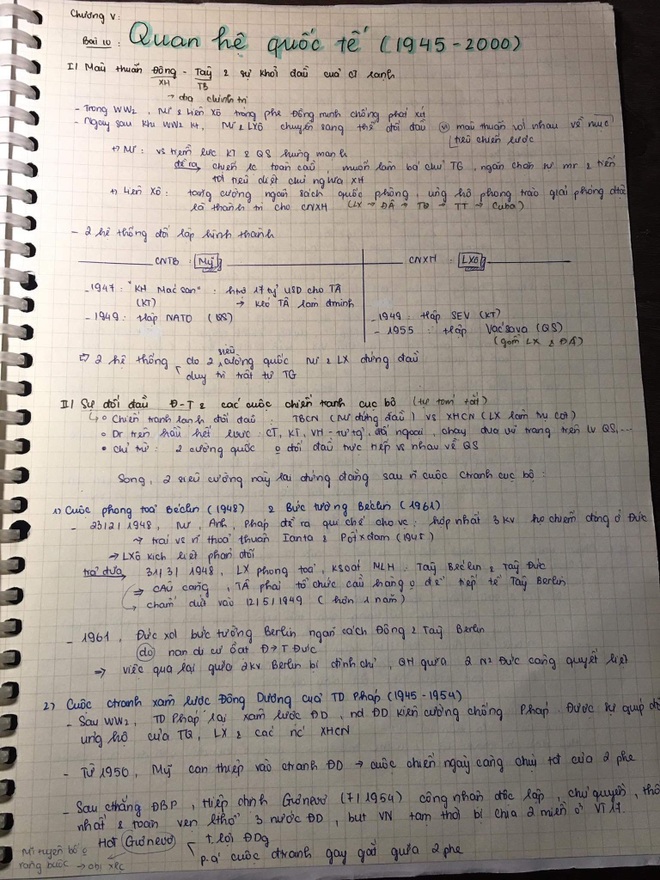 Chương V:
Bài 10: Quan hệ quốc tế (1945-2000)
I) Mâu thuẫn Đông - Tây & sự khởi đầu của CT lạnh
XH TB
→ địa chính trị
- Trong WW2, Mĩ & Liên Xô trong phe Đồng minh chống phát xít
- Ngay sau khi WW2 kt, Mĩ & LXô chuyển sang thế đối đầu (vì) mâu thuẫn với nhau về mục tiêu chiến lược
+) Mĩ: vs tiềm lực KT & QS hùng mạnh
đề ra → chiến lc toàn cầu, muốn làm bá chủ TG, ngăn chặn sự mr & tiến tới tiêu diệt chủ nghĩa XH
+) Liên Xô: tăng cường ngân sách quốc phòng, ủng hộ phong trào giải phóng dtộc
là thành trì cho CNXH (LX → ĐÂ → TQ → TT → Cuba)
- 2 hệ thống đối lập hình thành
CNTB: Mỹ CNXH: LXô
- 1947: "KH Macsan": hỗ trợ 17 tỷ USD cho TÂ
(KT) → kéo TÂ làm đminh
- 1949: lập NATO (QS)
- 1949: lập SEV (KT)
- 1955: lập Vacsava (QS)
(gồm LX & ĐÂ)
⇨ 2 hệ thống do 2 siêu cường quốc Mĩ & LX đứng đầu
duy trì trật tự TG
II) Sự đối đầu Đ-T & các cuộc chiến tranh cục bộ (tự tóm tắt)
↳ Chiến tranh lạnh đối đầu: TBCN (Mĩ đứng đầu) vs XHCN (LX làm trụ cột)
Dr trên hầu hết lvực: CT, KT, VH-tư tg', đối ngoại, chạy đua vũ trang trên lv QS,...
Chỉ trừ: 2 cường quốc o đối đầu trực tiếp vs nhau về QS
Song, 2 siêu cường này lại đứng đằng sau n cuộc ctranh cục bộ:
1) Cuộc phong toả Béclin (1948) & Bức tường Béclin (1961)
- 23/2/1948, Mĩ, Anh, Pháp đề ra qui chế cho vc: hợp nhất 3 kv họ chiếm đóng ở Đức
→ trái vs n thoả thuận Ianta & Pốtxđam (1945)
→ LXô kịch liệt phản đối
trả đũa 31/3/1948, LX phong toả, ksoát MLH Tây Béclin & Tây Đức
⇒ căng, TÂ phải tổ chức cầu hàng o để tiếp tế Tây Berlin
→ chấm dứt vào 12/5/1949 (hơn 1 năm)
- 1961, Đức xd bức tường Berlin ngăn cách Đông & Tây Berlin
(do) nạn di cư ồ ạt Đ → T Đức
⇒ việc qua lại giữa 2 kv Berlin bị đình chỉ, QH giữa 2 Đức càng quyết liệt
2) Cuộc ctranh xâm lược Đông Dương của TD Pháp (1945-1954)
- Sau WW2, TD Pháp lại xâm lược ĐD, nd ĐD kiên cường chống Pháp. Được sự giúp đỡ
ủng hộ của TQ, LX & các nc' XHCN
- Từ 1950, Mỹ can thiệp vào ctranh ĐD → cuộc chiến ngày càng chịu tđ của 2 phe
- Sau cthắng ĐBP, Hiệp định Giơnevơ (7/1954) công nhận độc lập, chủ quyền, thống
nhất & toàn vẹn lthổ 3 nước ĐD, but VN tạm thời bị chia 2 miền ở VT 17.
HĐ Giơnevơ t.lợi ĐDg
p.á cuộc đtranh gay gắt giữa 2 phe
Mĩ tuyên bố o
ràng buộc →